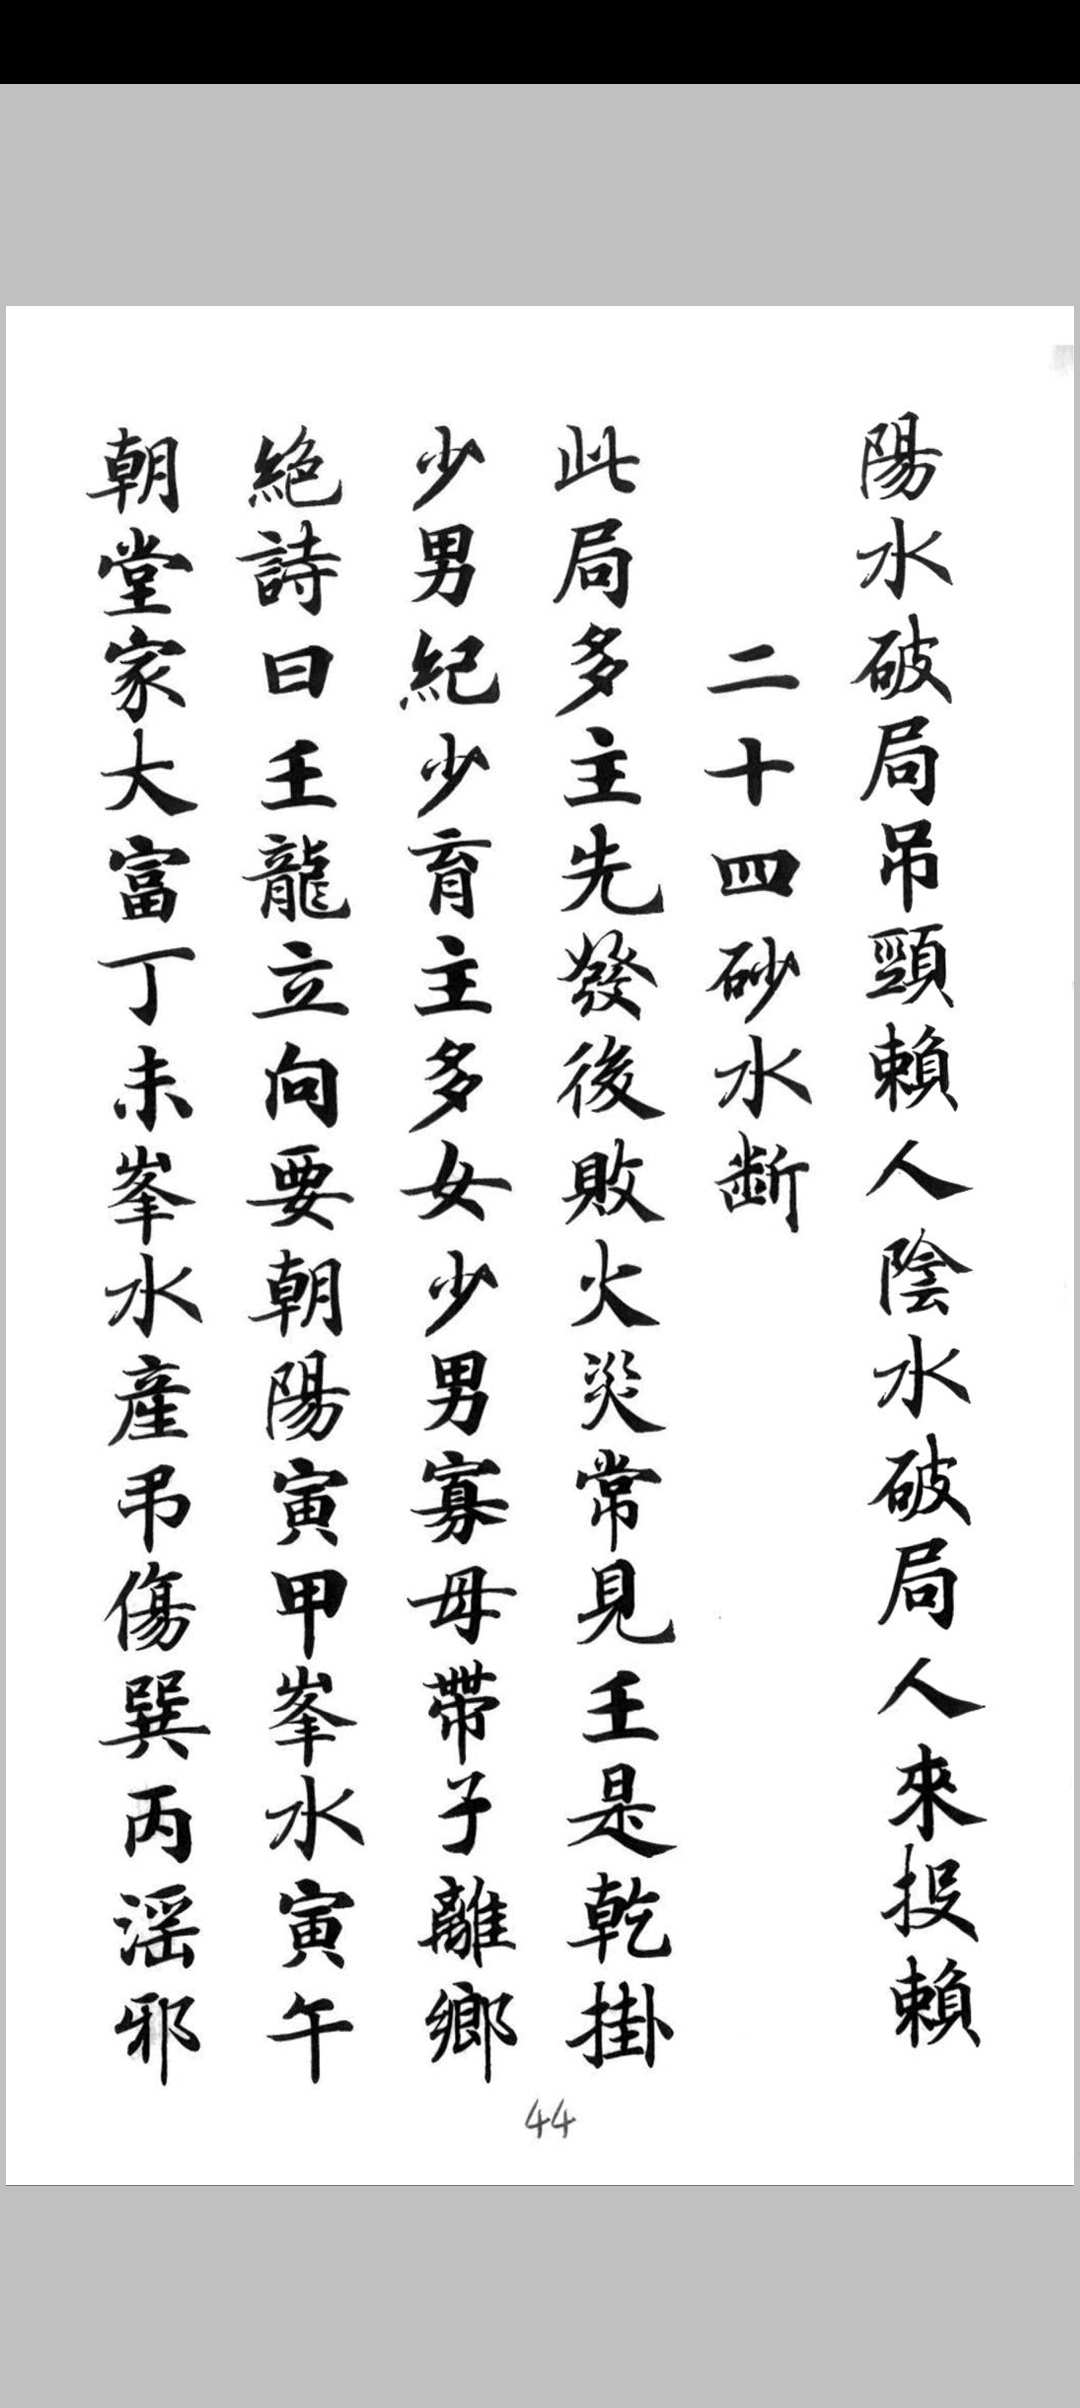 陽水破局吊頸賴人陰水破局人來投賴
二十四砂水斷
此局多主先發後敗火災常見壬是乾掛
少男紀少育主多女少男寡母帶子離鄉
絕詩曰壬龍立向要朝陽寅甲峯水寅午
朝堂家大富丁未峯水產弔傷巽丙滛邪
44